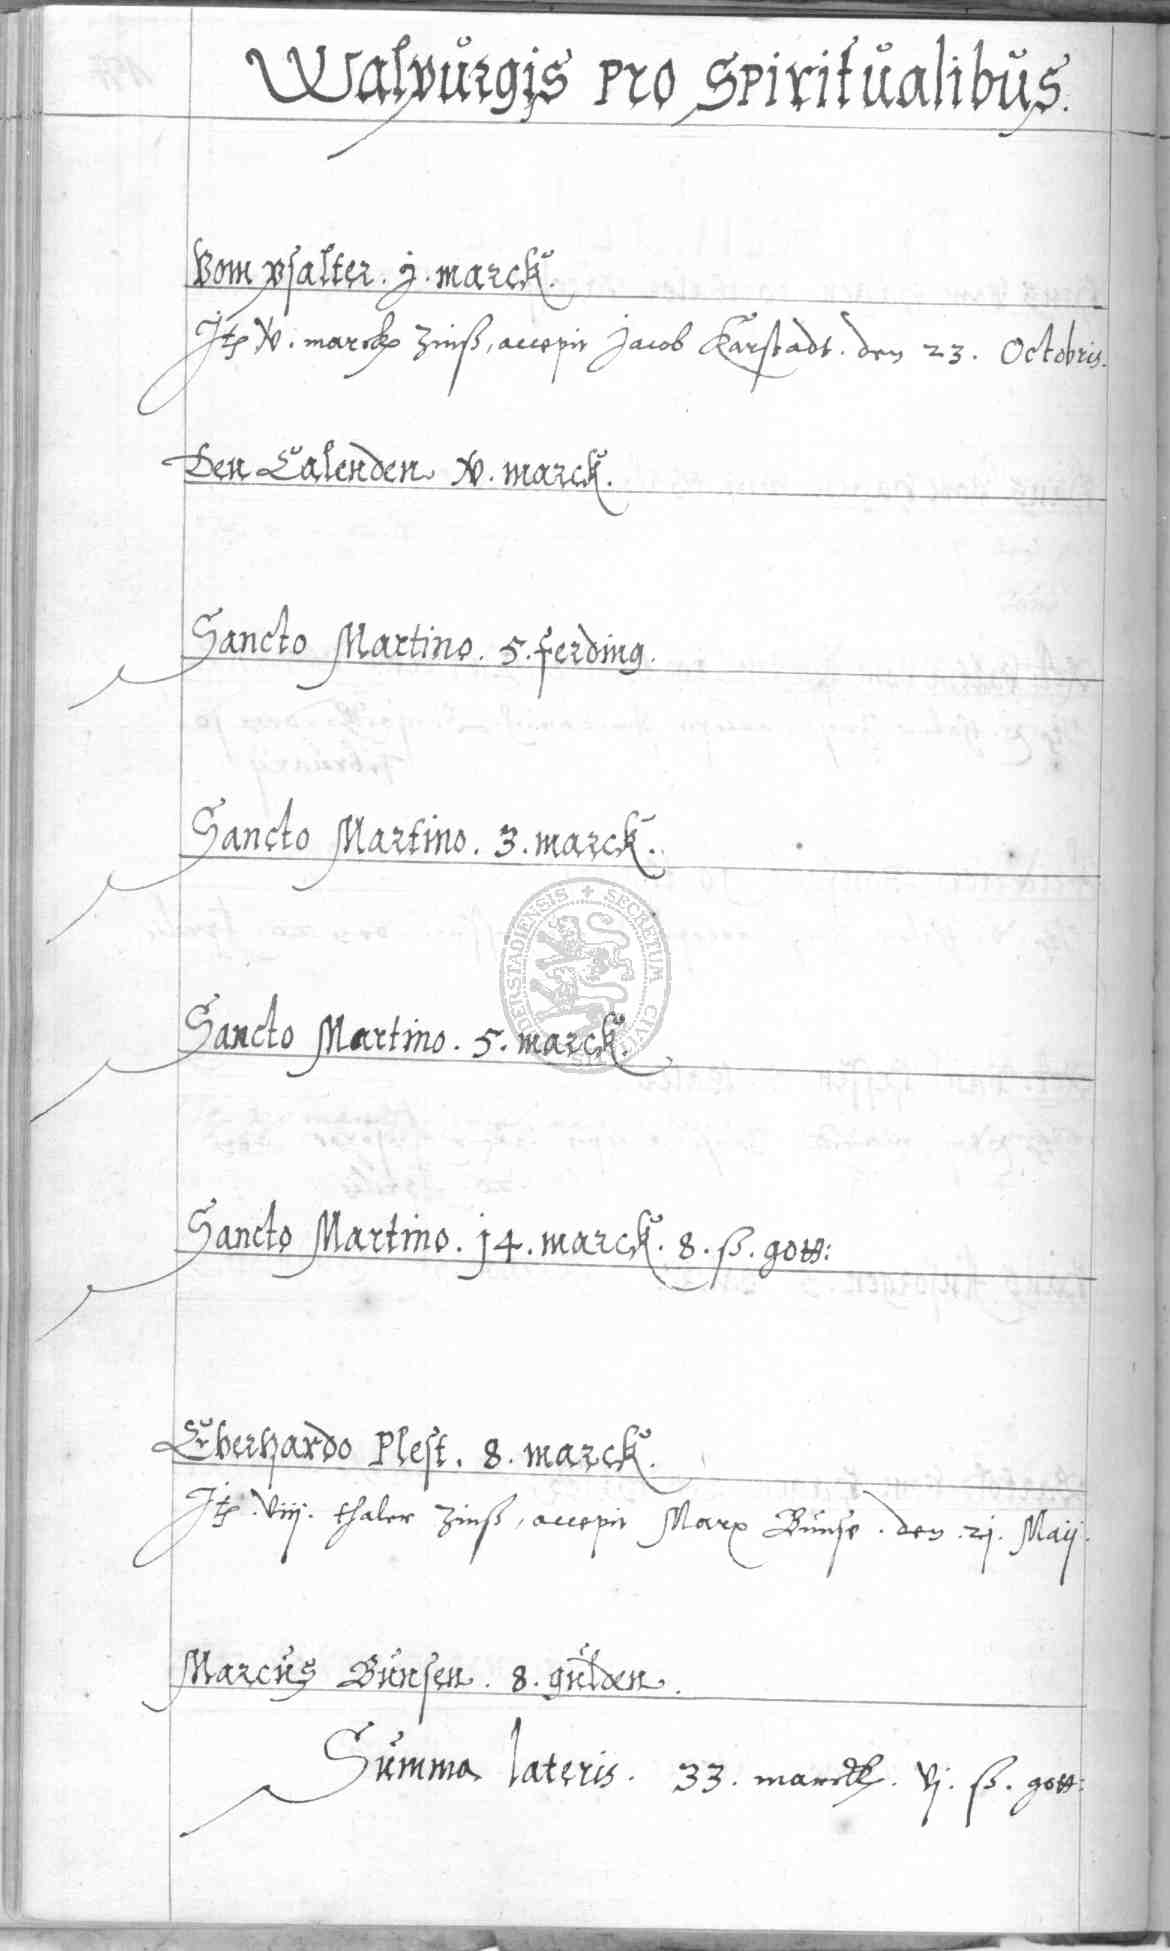 Walpurgis pro Spiritualibus.
Vom psalter. j. marck.
Jtem v. marck zinß, accepit Jacob Karstadt. den 23. Octobris.
Den Calenden v. marck.
Sancto Martino. 5. ferding.
Sancto Martino. 3. marck.
SECRETUM CIVIUM DERSTADIENSIS
Sancto Martino. 5. marck.
Sancto Martino. j4. marck. 8. ß. gott:
Eberhardo Plest. 8. marck.
Jtem viij. thaler zinß, accepit Marx Bunse. den 2j. Maij.
Marcus Bunsen. 8. gulden.
Summa lateris. 33. marck. vj. ß. gott: